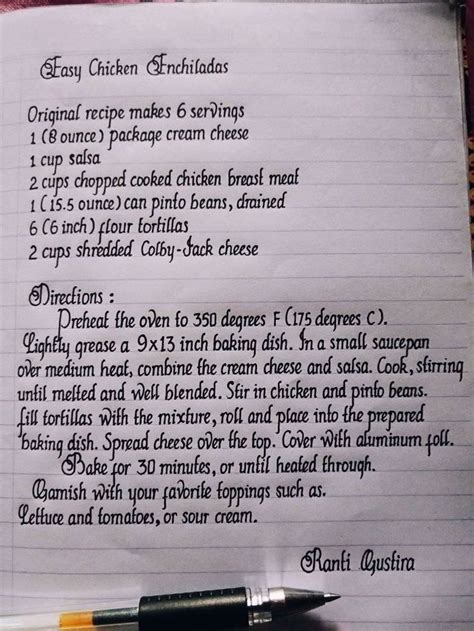 Easy Chicken Enchiladas
Original recipe makes 6 servings
1 (8 ounce) package cream cheese
1 cup salsa
2 cups chopped cooked chicken breast meat
1 (15.5 ounce) can pinto beans, drained
6 (6 inch) flour tortillas
2 cups shredded Colby-Jack cheese
Directions :
Preheat the oven to 350 degrees F (175 degrees C).
Lightly grease a 9x13 inch baking dish. In a small saucepan
over medium heat, combine the cream cheese and salsa. Cook, stirring
until melted and well blended. Stir in chicken and pinto beans.
fill tortillas with the mixture, roll and place into the prepared
baking dish. Spread cheese over the top. Cover with aluminum foll.
Bake for 30 minutes, or until heated through.
Garnish with your favorite toppings such as.
Lettuce and tomatoes, or sour cream.
Ranti Gustira